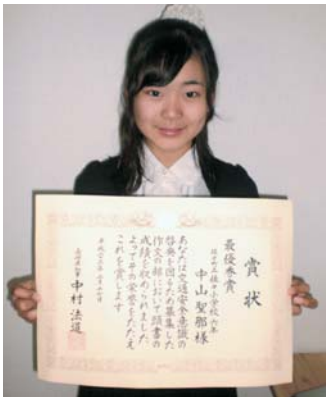 賞状
最優秀賞
小学校 六年
中山聖那 様
あなたは交通安全意識の
啓発を図るため募集した
作文の部において頭書の
成績を収められました
よってその栄誉をたたえ
これを賞します
中村法道